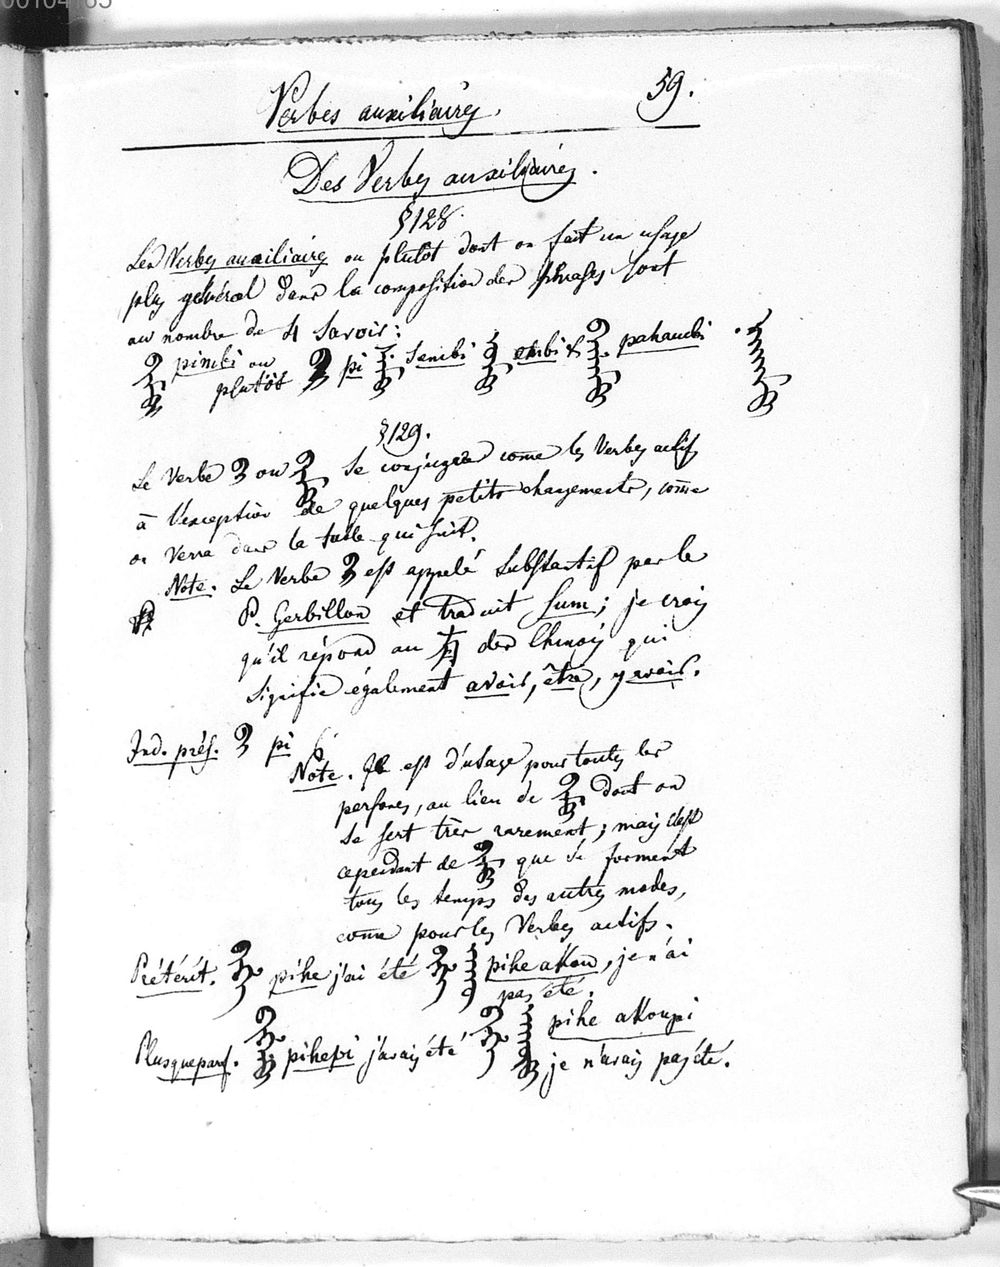 00104165
Verbes auxiliaires. 59.
Des Verbes auxiliaires.
§ 128.
Les Verbes auxiliaires ou plutôt dont on fait un usage
plus général dans la composition des phrases sont
au nombre de 4 savoir:
pimbi ou plutôt pi sembi ombi &
§ 129.
Le Verbe ou se conjugue come les Verbes actifs
à l'exception de quelques petits changements, come
on verra dans la table qui suit.
Note. Le Verbe est appelé substantif par le
P. Gerbillon et traduit sum; je crois
qu'il répond au 有 des Chinois qui
signifie également avoir, être, y avoir.
Ind. prés. pi
Note. Il est d'usage pour toutes les
persones, au lieu de dont on
se sert très rarement; mais c'est
cependant de que se forment
tous les temps des autres modes,
come pour les Verbes actifs.
Prétérit. pihe j'ai été pihe akou, je n'ai
pas été.
pihe akoupi
Plusqueparf. pihepi j'avais été je n'avais pas été.